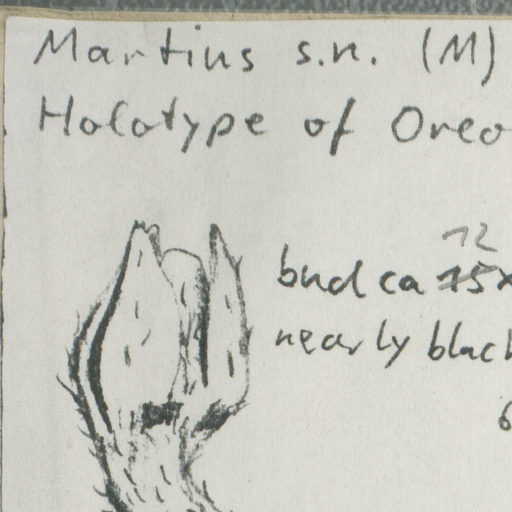 Martius s.n. (M)
Holotype of Oreo
12
bud ca 15x
nearly black
6